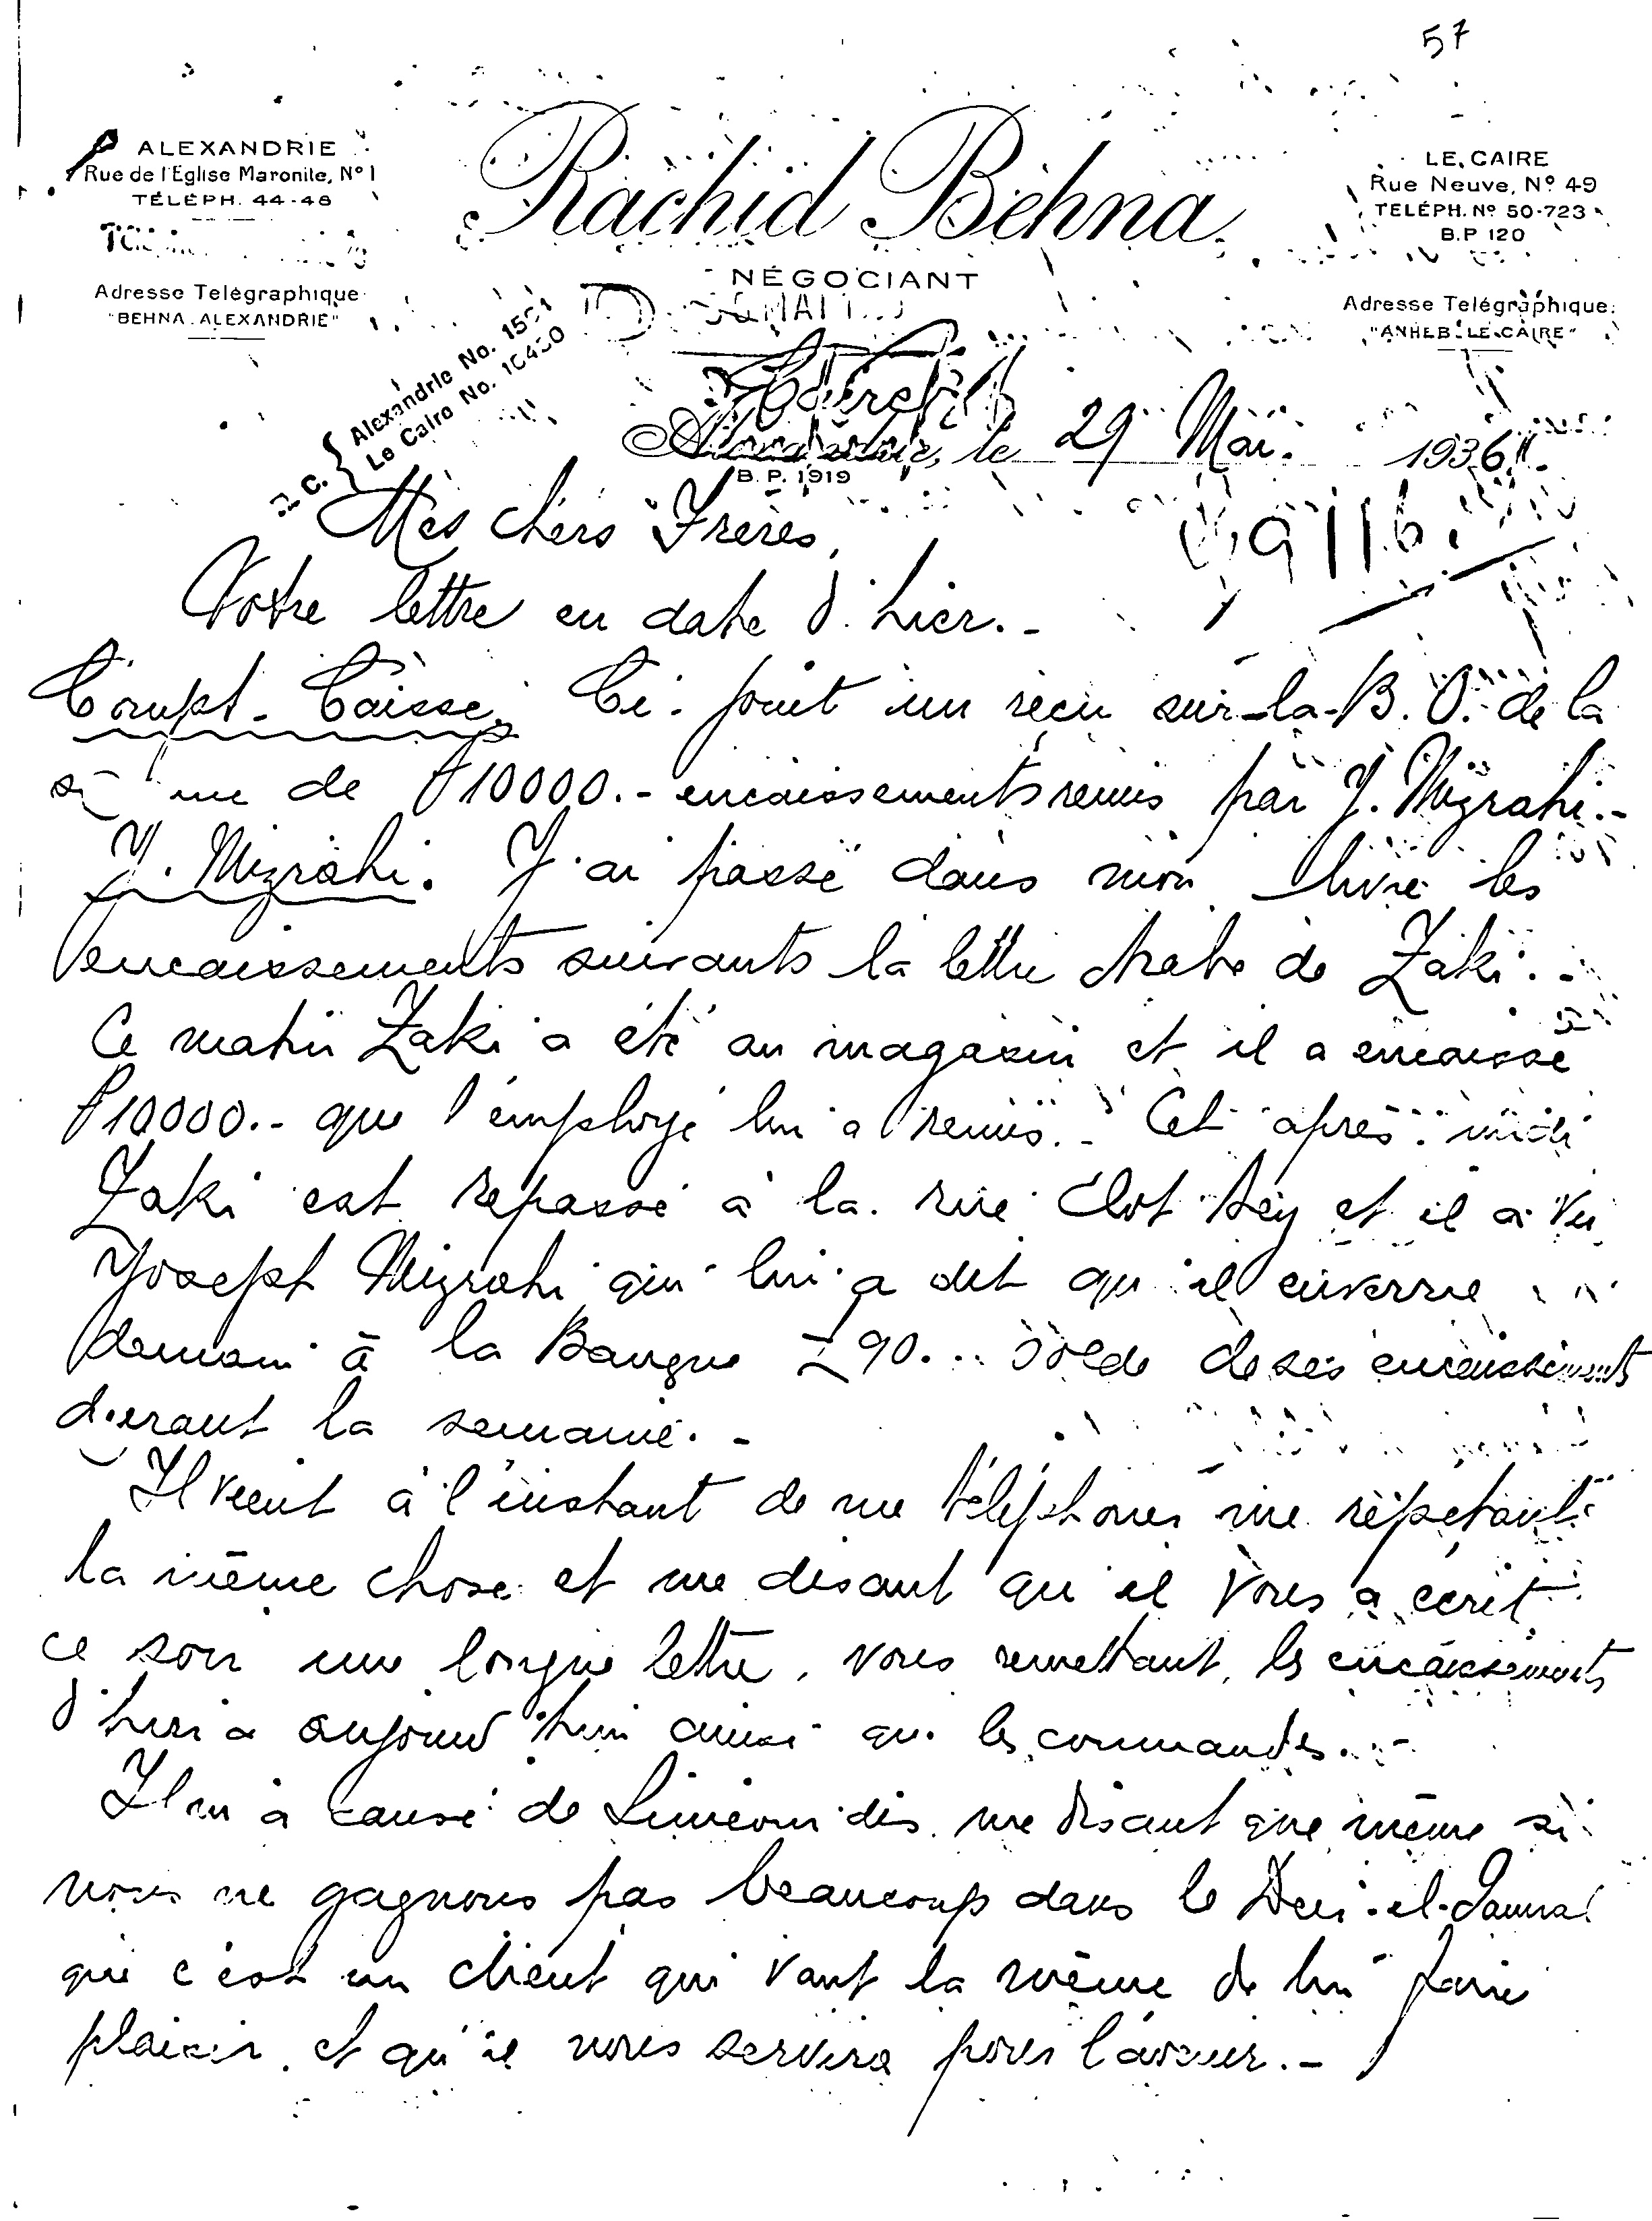 57
ALEXANDRIE
Rue de l'Eglise Maronite, Nº 1
TÉLÉPH. 44-48
Adresse Télégraphique
"BEHNA. ALEXANDRIE"
Rachid Behna
NÉGOCIANT
LE CAIRE
Rue Neuve, Nº 49
TELÉPH. Nº 50-723
B.P 120
Adresse Telégraphique:
"ANHEB. LE CAIRE"
R. C. { Alexandrie No.
Le Caire No.
Alexandrie, le 29 Mai 1936
B. P. 1919
9116
Mes chers Frères,
Votre lettre en date d'hier.-
Compt. Caisse. Ci-joint un reçu sur la B.O. de la
de P 10000.- encaissements remis par J. Mizrahi.-
J. Mizrahi. J'ai passé dans mon livre les
encaissements suivants la lettre Arabe de Zaki.-
Ce matin Zaki a été au magasin et il a encaissé
P 10000.- que l'employé lui a remis.- Cet après-midi
Zaki est repassé à la rue Clot bey et il a vu
Joseph Mizrahi qui lui a dit qu'il enverra
demain à la Banque £90.- solde de ses encaissements
durant la semaine.-
Il vient à l'instant de me téléphoner me répétant
la même chose et me disant qu'il vous a écrit
ce soir une longue lettre, vous remettant, les encaissements
d'hier à aujourd'hui ainsi que les commandes.-
Il m'a causé de Simeonidis me disant que même si
nous ne gagnons pas beaucoup dans le Deir-el-
que c'est un client qui vaut la même de lui faire
plaisir, et qu'il nous servira pour l'avenir.-